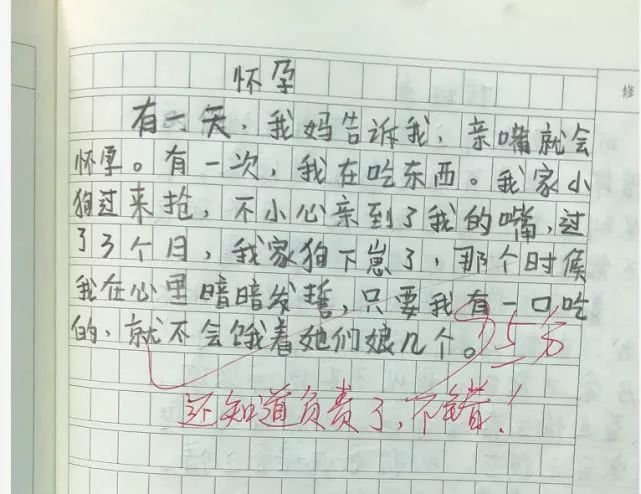 怀孕
有一天，我妈告诉我，亲嘴就会
怀孕。有一次，我在吃东西。我家小
狗过来抢，不小心亲到了我的嘴，过
了3个月，我家狗下崽了，那个时候
我在心里暗暗发誓，只要我有一口吃
的，就不会饿着她们娘几个。
95分
还知道负责了，不错！
修